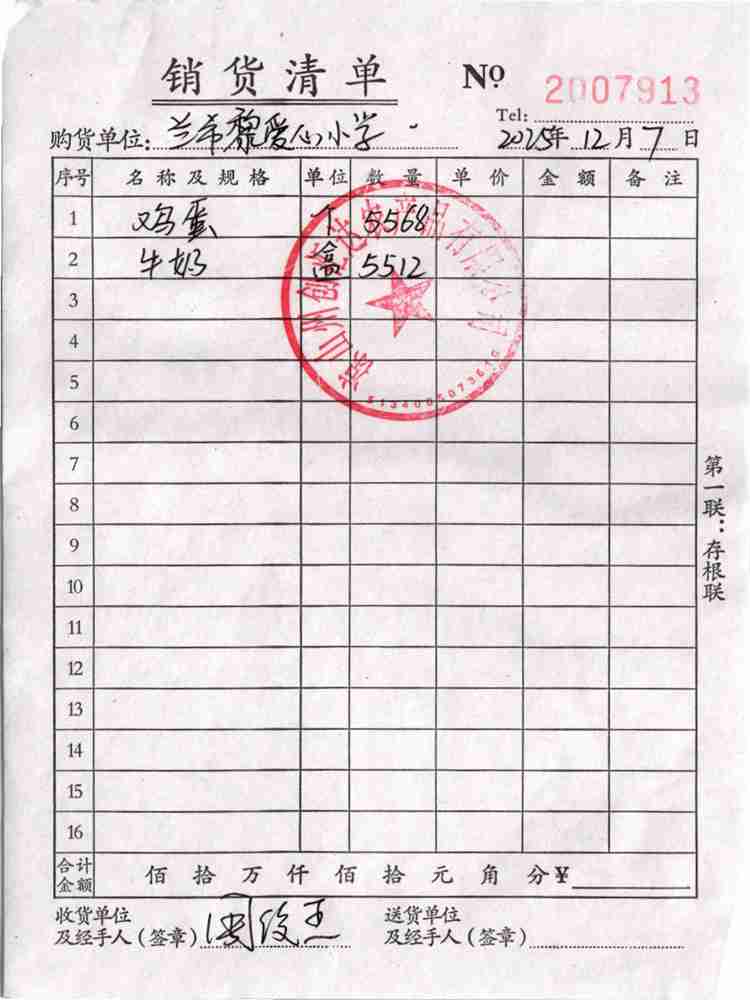 销货清单 № 2007913
Tel:
购货单位: 兰希黎爱心小学 2025年12月7日
序号 名称及规格 单位 数量 单价 金额 备注
1 鸡蛋 个 5568
2 牛奶 盒 5512
3
4
5
6
7
8
9
10
11
12
13
14
15
16
合计金额 佰拾万仟佰拾元角分¥
收货单位 送货单位
及经手人(签章) 周俊 及经手人(签章)
第一联:存根联
凉山州创
有限公司
5134005073610